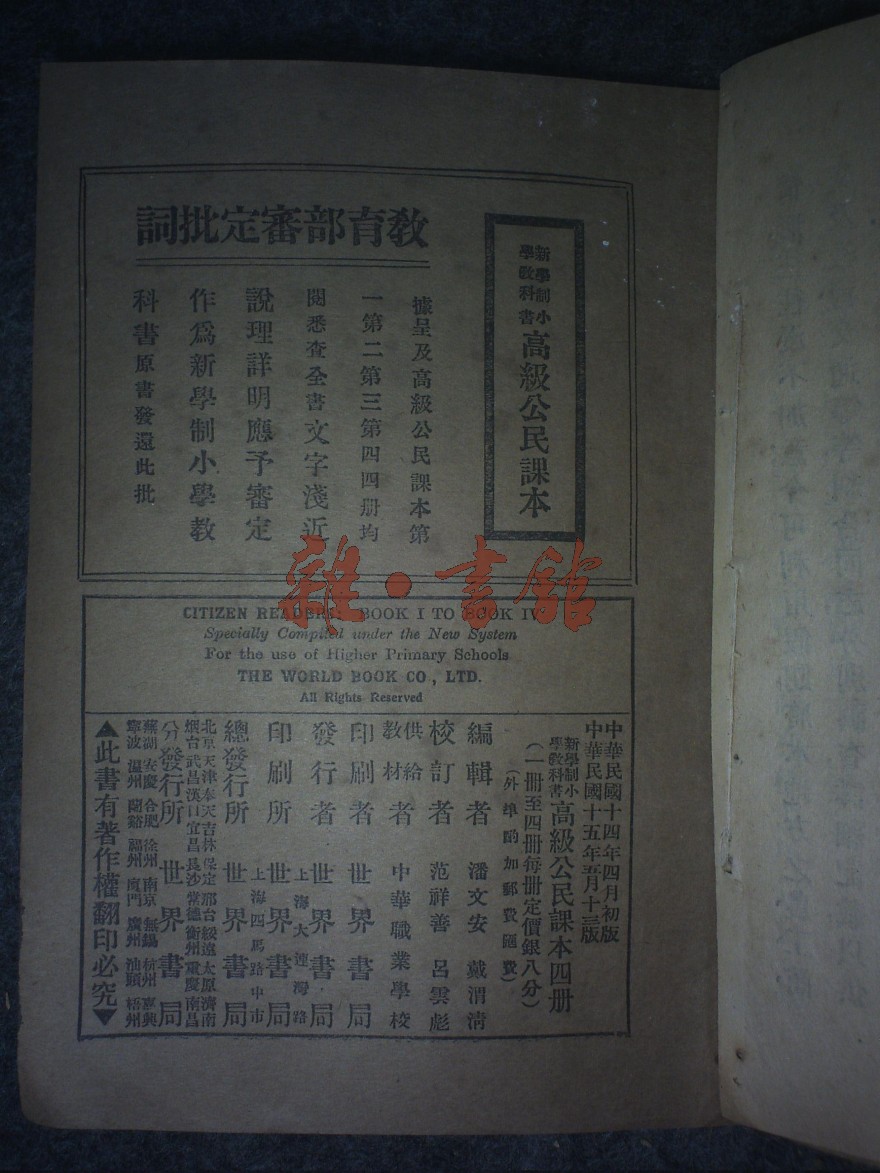 新學制小
學教科書
高級公民課本
教育部審定批詞
據呈及高級公民課本第
一第二第三第四四册均
閱悉查全書文字淺近
說理詳明應予審定
作爲新學制小學教
科書原書發還此批
雜·書館
CITIZEN READERS: BOOK I TO BOOK IV
Specially Compiled under the New System
For the use of Higher Primary Schools
THE WORLD BOOK CO., LTD.
All Rights Reserved
中華民國十四年四月初版
中華民國十五年五月十三版
新學制小
學教科書
高級公民課本四册
(一册至四册每册定價銀八分)
(外埠酌加郵費匯費)
編輯者 潘文安 戴渭清
校訂者 范祥善 呂雲彪
供給教材者 中華職業學校
印刷者 世界書局
發行者 世界書局
上海大連灣路
印刷所 世界書局
上海四馬路中市
總發行所 世界書局
北京天津奉天吉林保定邢台綏遠太原濟南
烟台武昌漢口宜昌長沙常德衡州重慶南昌
分發行所 世界書局
蕪湖 安慶 合肥 徐州 南京 無錫 杭州 嘉興
寧波 溫州 蘭谿 福州 廈門 廣州 汕頭 梧州
▲此書有著作權翻印必究▼